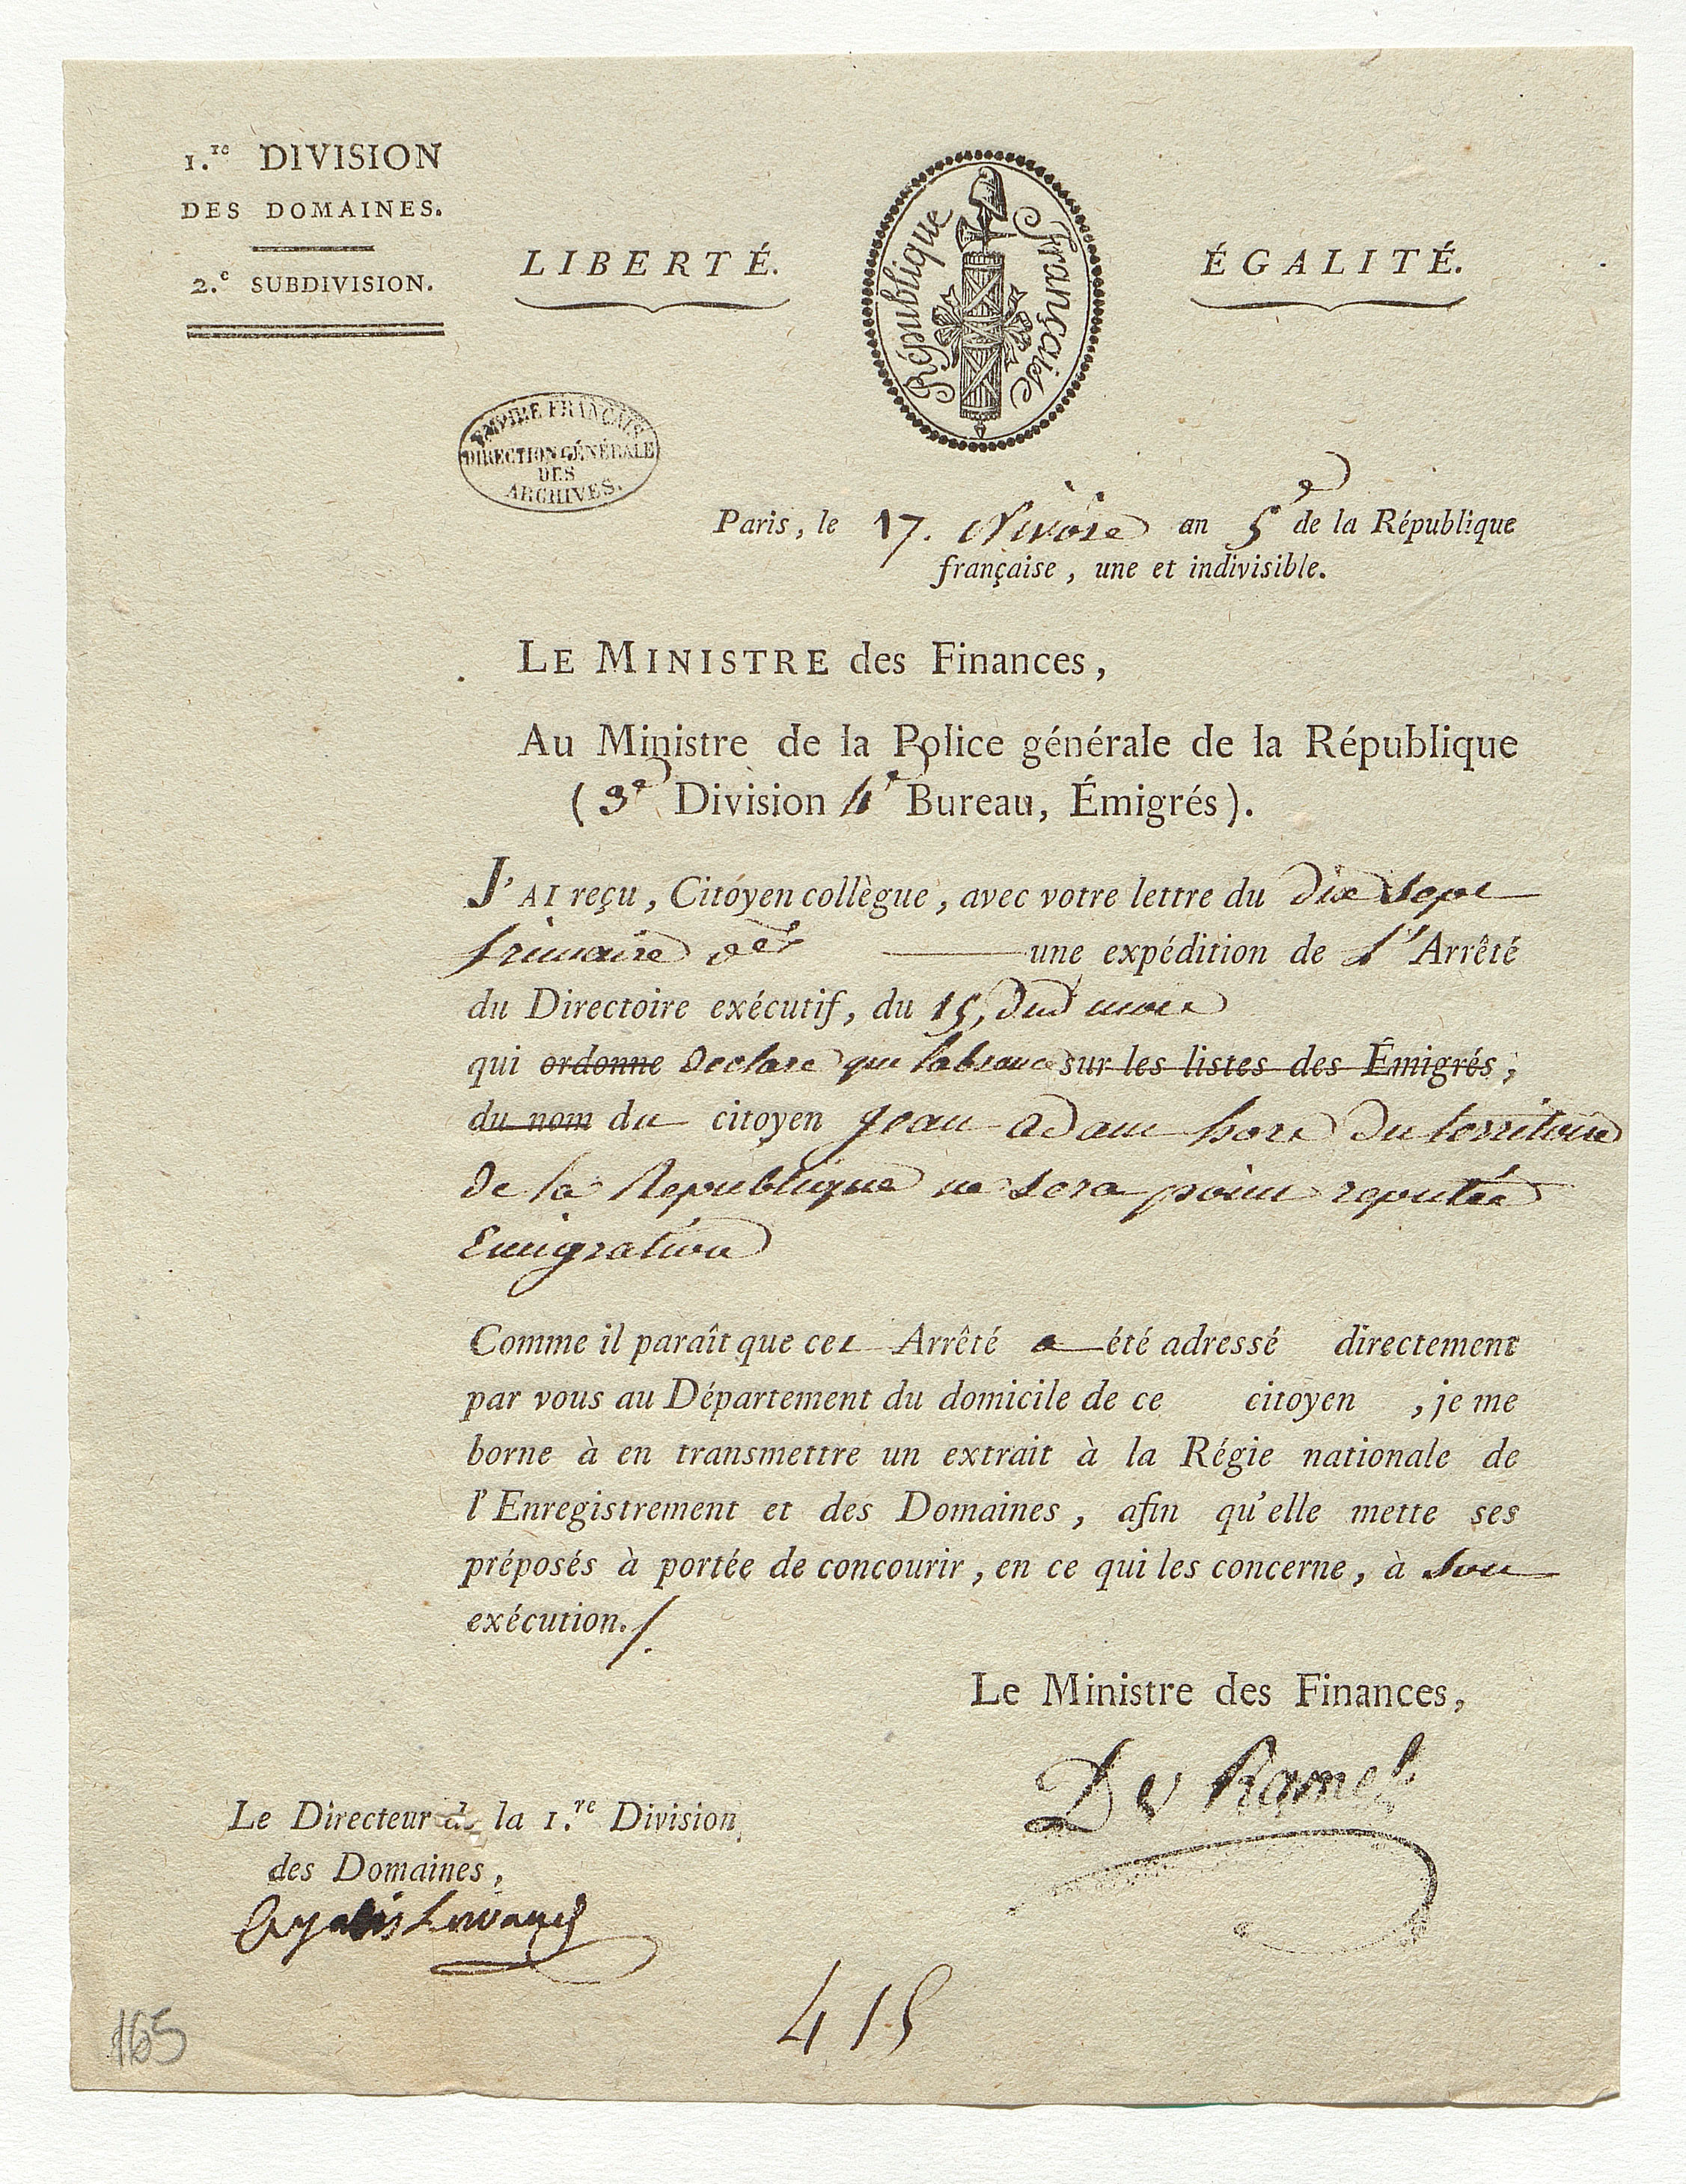 1.re DIVISION
DES DOMAINES.
2.e SUBDIVISION.
LIBERTÉ.
République Française
ÉGALITÉ.
EMPIRE FRANÇAIS
DIRECTION GÉNÉRALE
DES
ARCHIVES.
Paris, le 17. Nivôse an 5e de la République
française, une et indivisible.
LE MINISTRE des Finances,
Au Ministre de la Police générale de la République
(3e Division 4e Bureau, Émigrés).
J'AI reçu, Citoyen collègue, avec votre lettre du dix Sept
frimaire der une expédition de L'Arrêté
du Directoire exécutif, du 15, dud mois
qui ordonne declare que labsence sur les listes des Émigrés,
du nom du citoyen Jean adam hors du territoire
de la Republique ne Sera point reputée
Emigration
Comme il paraît que cet Arrêté a été adressé directement
par vous au Département du domicile de ce citoyen, je me
borne à en transmettre un extrait à la Régie nationale de
l'Enregistrement et des Domaines, afin qu'elle mette ses
préposés à portée de concourir, en ce qui les concerne, à Son
exécution./.
Le Ministre des Finances,
D v Ramel
Le Directeur de la 1.re Division
des Domaines,
415
165